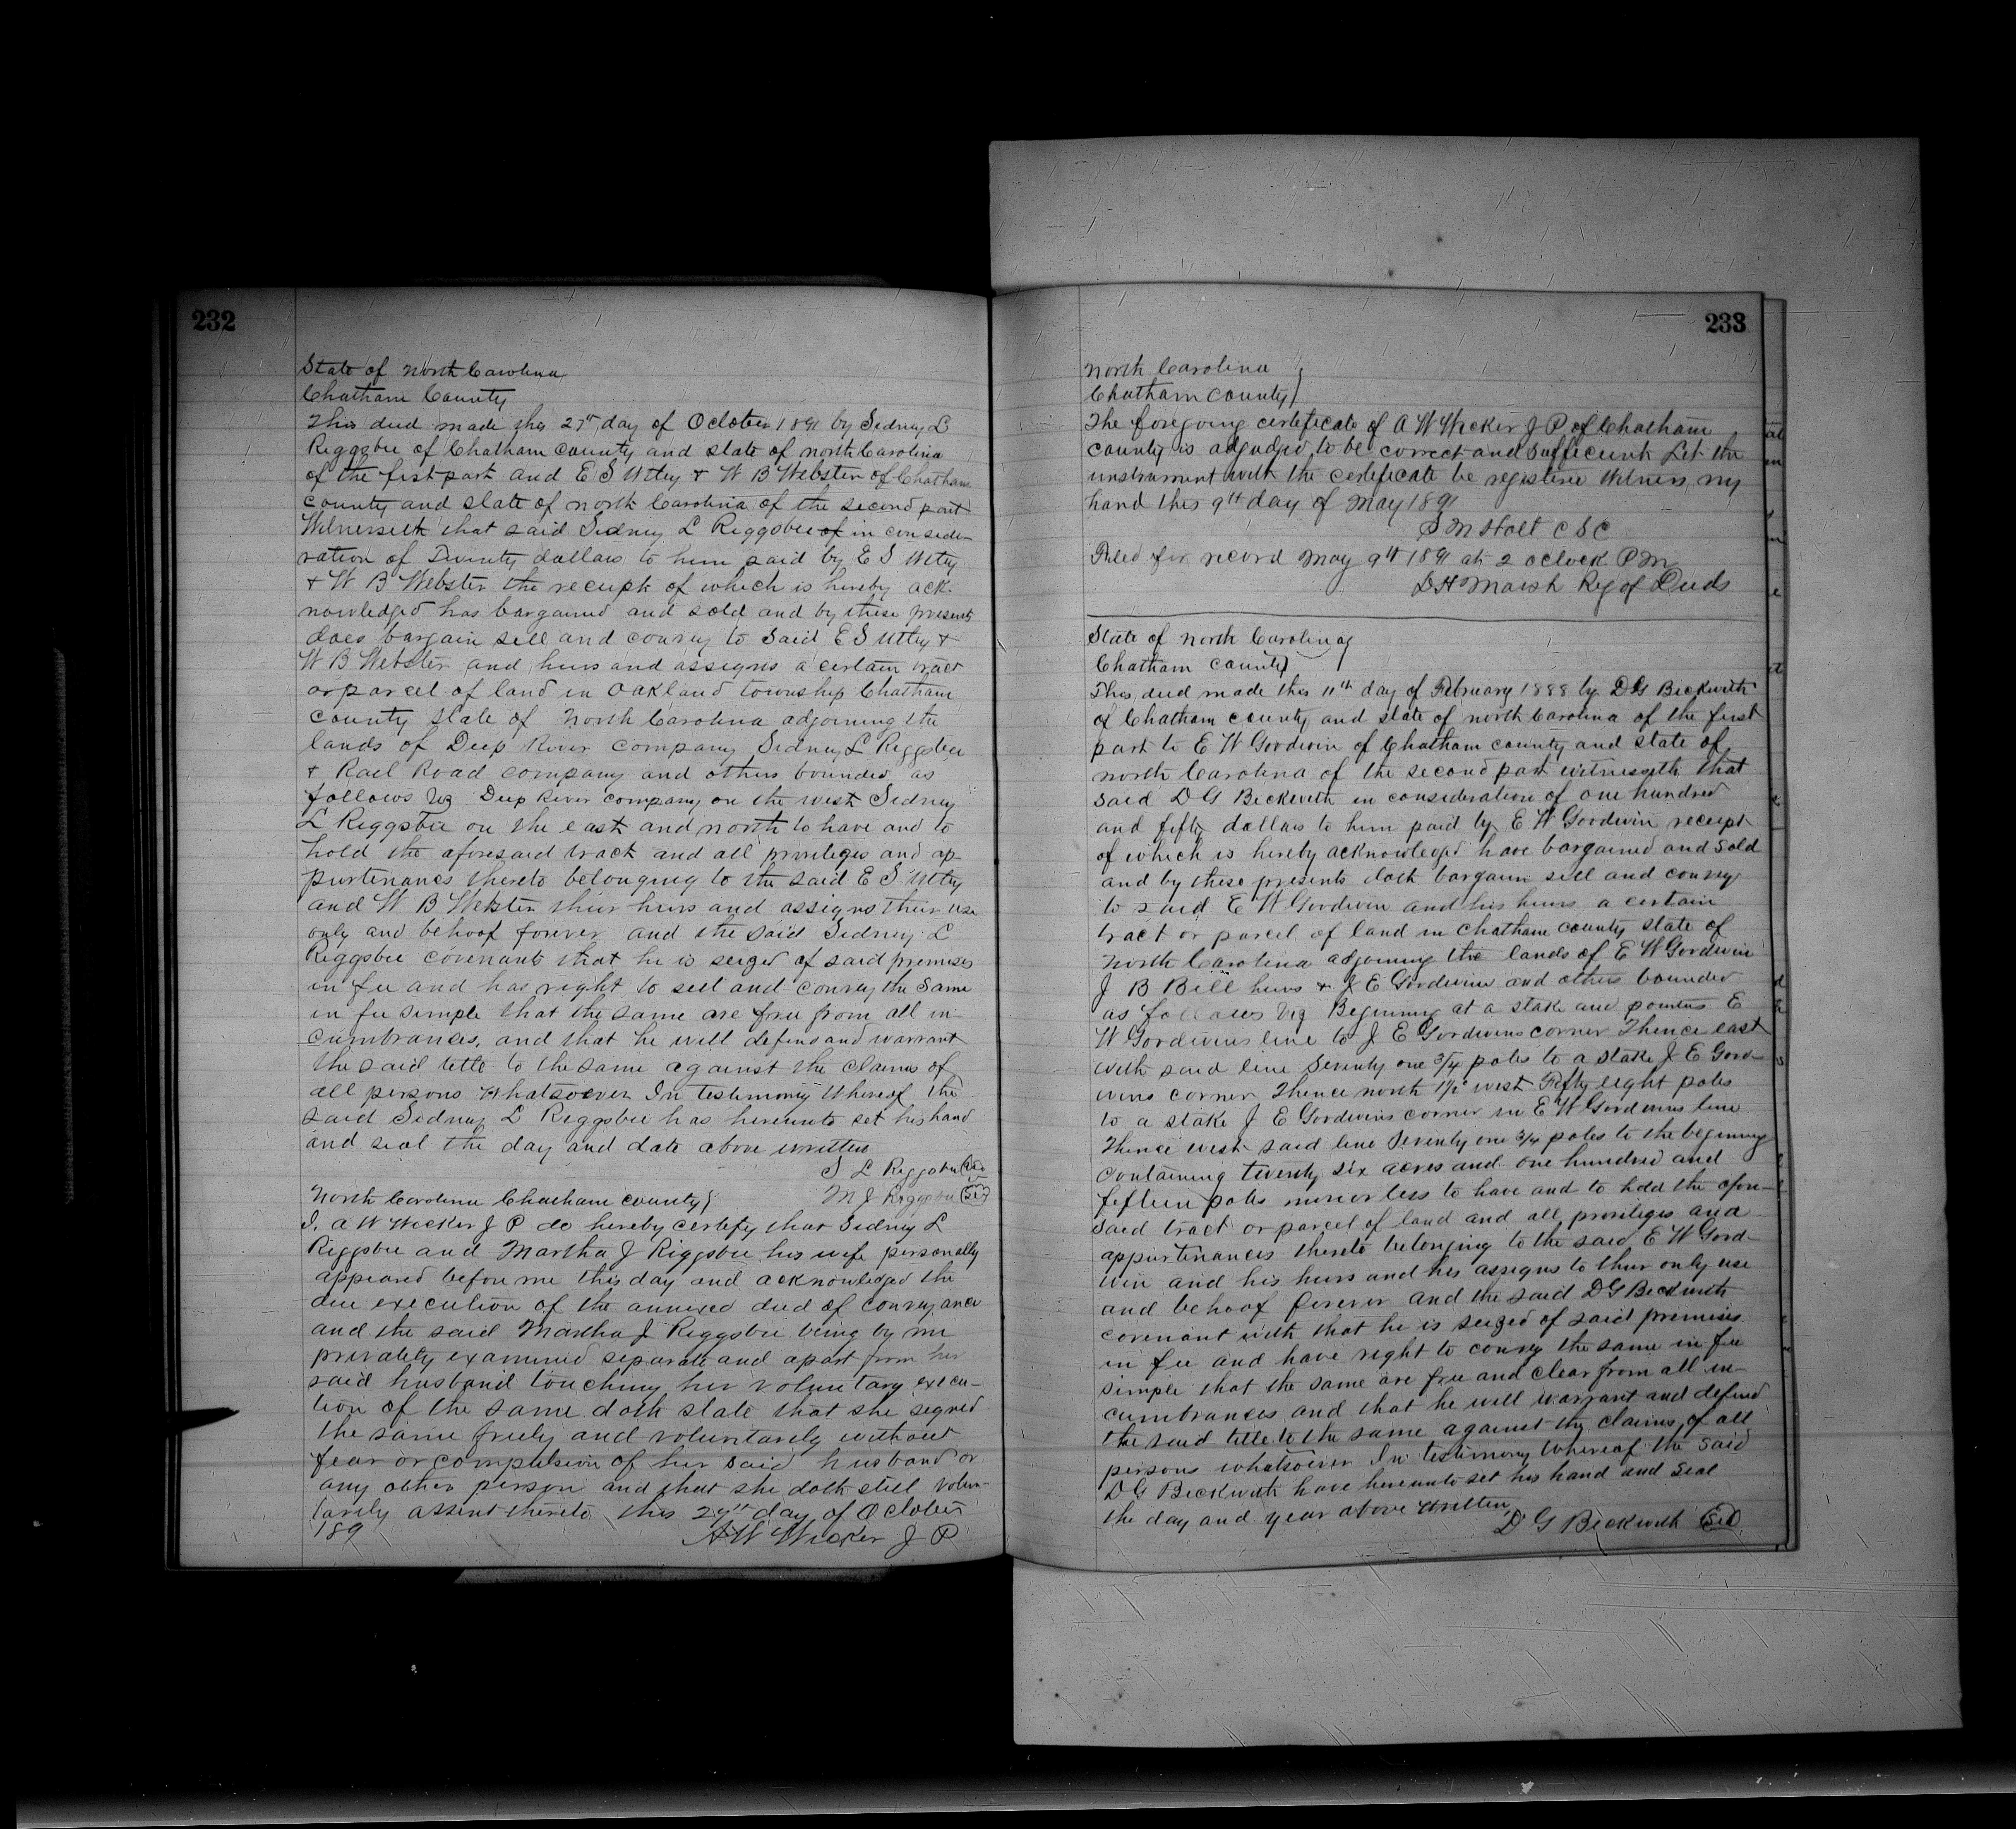 232
State of North Carolina
Chatham County
This deed made this 27th day of October 1891 by Sidney L
Riggsbee of Chatham County and state of north Carolina
of the first part and E S Utley + W B Webster of Chatham
county and state of north Carolina of the second part
Witnesseth that said Sidney L Riggsbee of in conside-
ration of Twenty dollars to him paid by E S Utley
+ W B Webster the receipt of which is hereby ack-
nowledged has bargained and sold and by these presents
does bargain sell and convey to said E S Utley +
W B Webster and heirs and assigns a certain tract
or parcel of land in Oakland township Chatham
County State of North Carolina adjoining the
lands of Deep River company Sidney L Riggsbee
+ Rail Road company and others bounded as
follows viz Deep River company on the west Sidney
L Riggsbee on the east and north to have and to
hold the aforesaid tract and all privileges and ap-
purtenances thereto belonging to the said E S Utley
and W B Webster their heirs and assigns their use
only and behoof forever and the said Sidney L
Riggsbee covenants that he is seized of said premises
in fee and has right to sell and convey the same
in fee simple that the same are free from all in-
cumbrances, and that he will defend and warrant
the said title to the same against the claims of
all persons whatsoever In testimony whereof the
said Sidney L Riggsbee has hereunto set his hand
and seal the day and date above written
S L Riggsbee
M J Riggsbee
North Carolina Chatham county
I, A W Wicker J P do hereby certify that Sidney L
Riggsbee and Martha J Riggsbee his wife personally
appeared before me this day and acknowledged the
due execution of the annexed deed of conveyance
and the said Martha J Riggsbee being by me
privately examined separate and apart from her
said husband touching her voluntary execu-
tion of the same doth state that she signed
the same freely and voluntarily without
fear or compulsion of her said husband or
any other person and that she doth still volun-
tarily assent thereto this 27th day of October
189
A W Wicker J P
233
North Carolina
Chatham County
The foregoing certificate of A W Wicker J P of Chatham
county is adjudged to be correct and sufficient Let the
instrument with the certificate be registered Witness my
hand this 9th day of May 1891
S M Holt C S C
Filed for record May 9th 1891 at 2 oclock P M
D H Marsh Reg of Deeds
State of North Carolina
Chatham County
This deed made this 11th day of February 1888 by D G Beckwith
of Chatham county and state of north Carolina of the first
part to E W Goodwin of Chatham county and state of
north Carolina of the second part witnesseth that
said D G Beckwith in consideration of one hundred
and fifty dollars to him paid by E W Goodwin receipt
of which is hereby acknowledged have bargained and sold
and by these presents doth bargain sell and convey
to said E W Goodwin and his heirs a certain
tract or parcel of land in Chatham county state of
North Carolina adjoining the lands of E W Gordwin
J B Bell heirs + J E Gordwin and others bounded
as follows viz Beginning at a stake and pointers E
W Gordwins line to J E Gordwins corner Thence east
with said line Seventy one 3/4 poles to a stake J E Gord-
wins corner Thence north 1½° west Fifty eight poles
to a stake J E Gordwins corner in E W Gordwins line
Thence west said line Seventy one 3/4 poles to the beginning
containing twenty six acres and one hundred and
fifteen poles more or less to have and to hold the afore-
said tract or parcel of land and all privileges and
appurtenances thereto belonging to the said E W Gord-
win and his heirs and his assigns to their only use
and behoof forever and the said D G Beckwith
covenant with that he is seized of said premises
in fee and have right to convey the same in fee
simple that the same are free and clear from all in-
cumbrances and that he will warrant and defend
the said title to the same against the claims of all
persons whatsoever In testimony whereof the said
D G Beckwith have hereunto set his hand and seal
the day and year above written
D G Beckwith